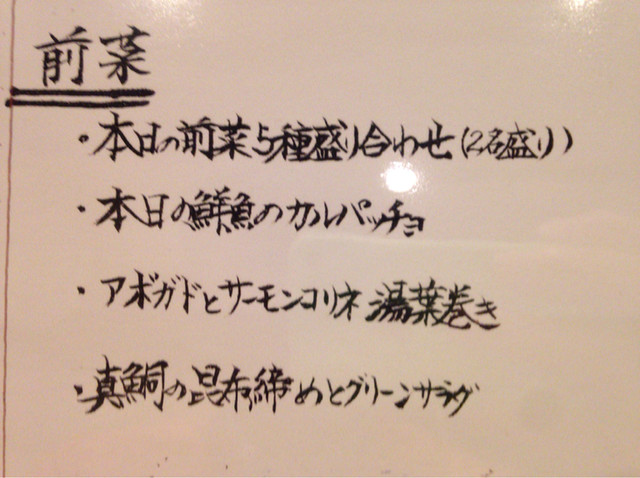 前菜
・本日の前菜5種盛り合わせ(2名盛り)
・本日の鮮魚のカルパッチョ
・アボガドとサーモンコリネ湯葉巻き
・真鯛の昆布締めとグリーンサラダ